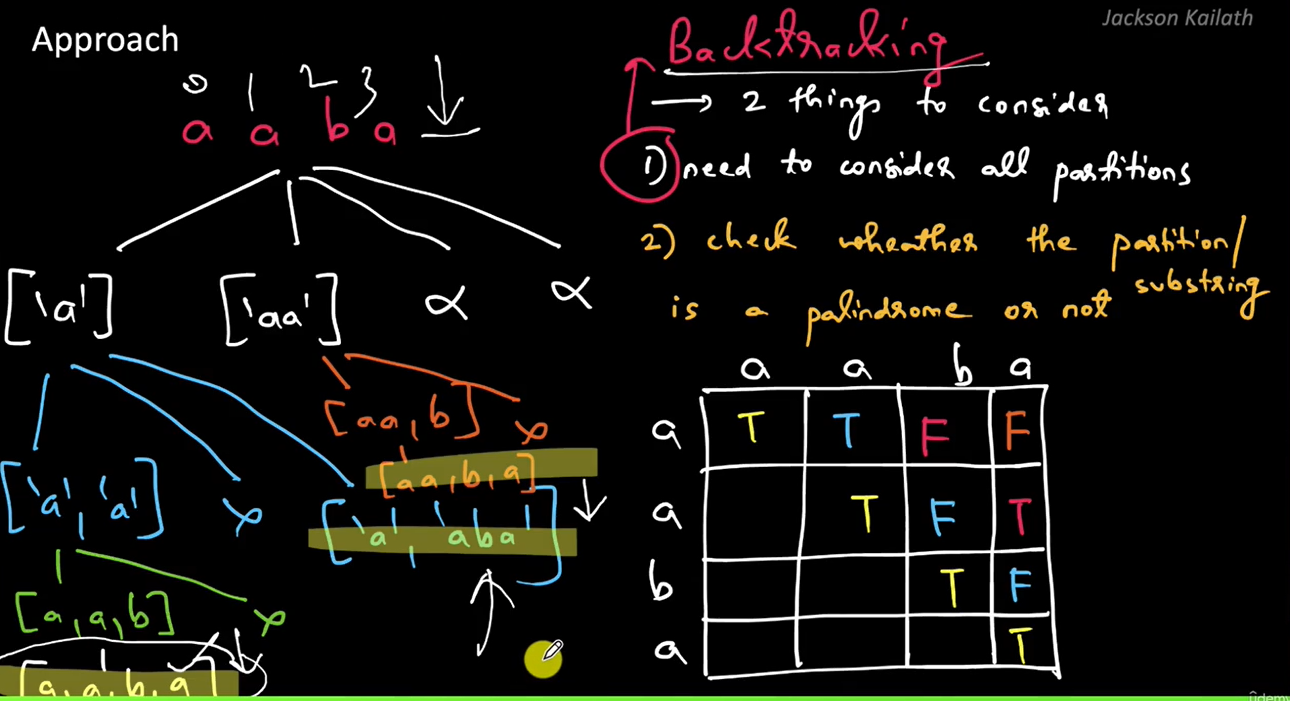 Jackson Kailath
Approach
0 1 2 3
a a b a
['a'] ['aa'] ∝ ∝
[aa, b]
[aa, b, a]
['a', 'a'] ['a', 'aba']
[a, a, b]
[a, a, b, a]
Backtracking
→ 2 things to consider
1) need to consider all partitions
2) check wheather the partition/
substring
is a palindrome or not
a a b a
a T T F F
a T F T
b T F
a T
ûdemy